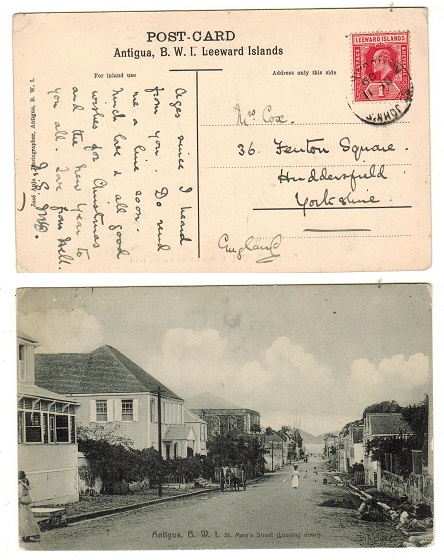 POST-CARD
Antigua, B. W. I. Leeward Islands
For inland use
Address only this side
LEEWARD ISLANDS
POSTAGE
1
ST. JOHN'S
Ages since I heard
from you. Do send
me a line soon.
Much love & all good
wishes for Christmas
and the New Year to
you all. Love from Nell.
José Anjo, Photographer, Antigua, B. W. I.
Mrs Cox.
36. Fenton Square.
Huddersfield
Yorkshire.
England
Antigua, B. W. I. St. Mary's Street (Looking down).